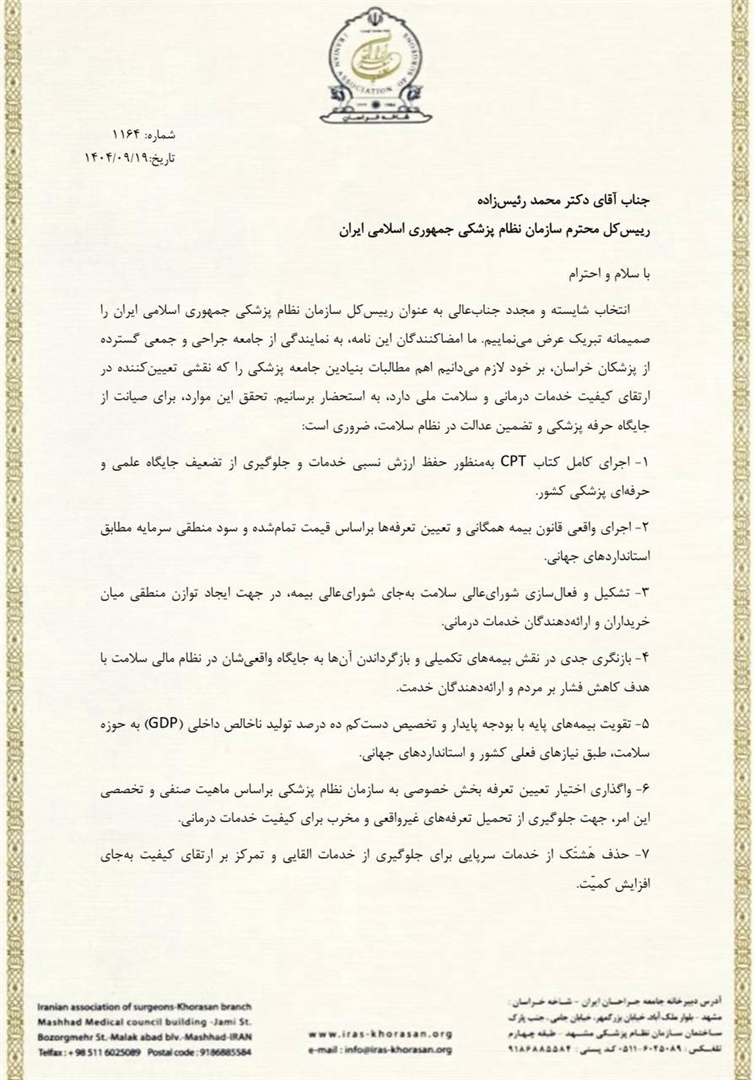 IRANIAN ASSOCIATION OF SURGEONS
شاخه خراسان
شماره: ۱۱۶۴
تاریخ:۱۴۰۴/۰۹/۱۹
جناب آقای دکتر محمد رئیس‌زاده
رییس‌کل محترم سازمان نظام پزشکی جمهوری اسلامی ایران
با سلام و احترام
انتخاب شایسته و مجدد جناب‌عالی به عنوان رییس‌کل سازمان نظام پزشکی جمهوری اسلامی ایران را
صمیمانه تبریک عرض می‌نماییم. ما امضاکنندگان این نامه، به نمایندگی از جامعه جراحی و جمعی گسترده
از پزشکان خراسان، بر خود لازم می‌دانیم اهم مطالبات بنیادین جامعه پزشکی را که نقشی تعیین‌کننده در
ارتقای کیفیت خدمات درمانی و سلامت ملی دارد، به استحضار برسانیم. تحقق این موارد، برای صیانت از
جایگاه حرفه پزشکی و تضمین عدالت در نظام سلامت، ضروری است:
۱- اجرای کامل کتاب CPT به‌منظور حفظ ارزش نسبی خدمات و جلوگیری از تضعیف جایگاه علمی و
حرفه‌ای پزشکی کشور.
۲- اجرای واقعی قانون بیمه همگانی و تعیین تعرفه‌ها براساس قیمت تمام‌شده و سود منطقی سرمایه مطابق
استانداردهای جهانی.
۳- تشکیل و فعال‌سازی شورای‌عالی سلامت به‌جای شورای‌عالی بیمه، در جهت ایجاد توازن منطقی میان
خریداران و ارائه‌دهندگان خدمات درمانی.
۴- بازنگری جدی در نقش بیمه‌های تکمیلی و بازگرداندن آن‌ها به جایگاه واقعی‌شان در نظام مالی سلامت با
هدف کاهش فشار بر مردم و ارائه‌دهندگان خدمت.
۵- تقویت بیمه‌های پایه با بودجه پایدار و تخصیص دست‌کم ده درصد تولید ناخالص داخلی (GDP) به حوزه
سلامت، طبق نیازهای فعلی کشور و استانداردهای جهانی.
۶- واگذاری اختیار تعیین تعرفه بخش خصوصی به سازمان نظام پزشکی براساس ماهیت صنفی و تخصصی
این امر، جهت جلوگیری از تحمیل تعرفه‌های غیرواقعی و مخرب برای کیفیت خدمات درمانی.
۷- حذف هَشتَک از خدمات سرپایی برای جلوگیری از خدمات القایی و تمرکز بر ارتقای کیفیت به‌جای
افزایش کمیّت.
آدرس دبیرخانه جامعه جراحان ایران - شاخه خراسان :
مشهد - بلوار ملک آباد، خیابان بزرگمهر، خیابان جامی، جنب پارک
ساختمان سازمان نظام پزشکی مشهد - طبقه چهارم
تلفکس : ۶۰۲۵۰۸۹-۰۵۱۱ کد پستی : ۹۱۸۶۸۸۵۵۸۴
www.iras-khorasan.org
e-mail : info@iras-khorasan.org
Iranian association of surgeons-Khorasan branch
Mashhad Medical council building -Jami St.
Bozorgmehr St.-Malak abad blv.-Mashhad-IRAN
Telfax : + 98 511 6025089 Postal code : 9186885584